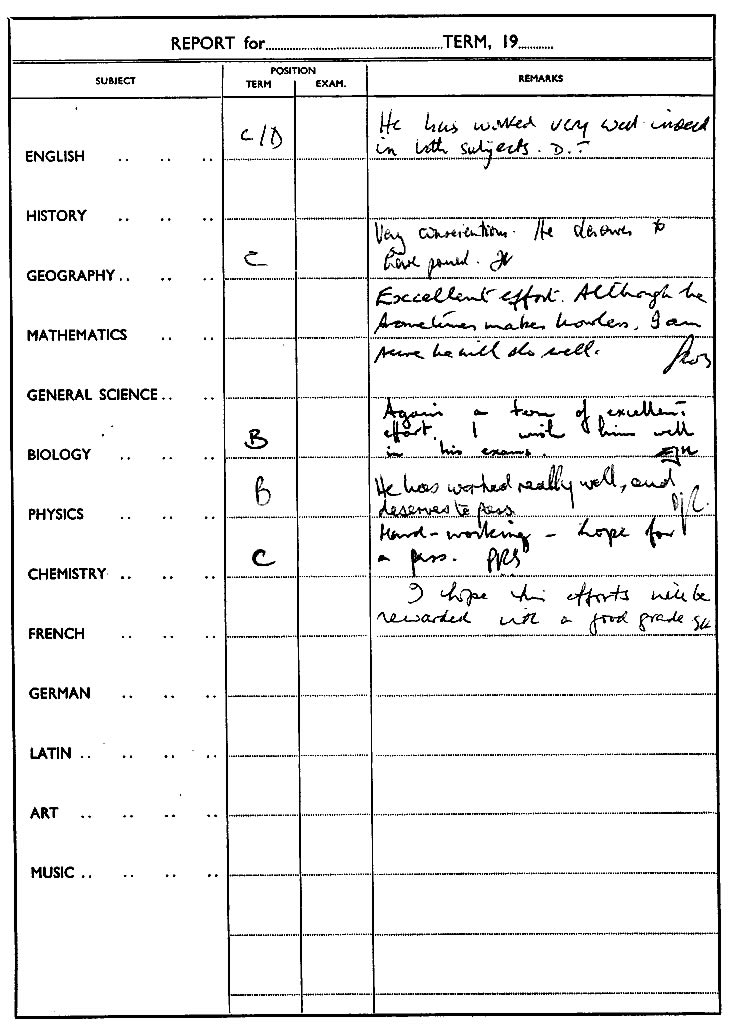 REPORT for............TERM, 19......
SUBJECT
POSITION
TERM
EXAM.
REMARKS
ENGLISH .. .. ..
C/D
He has worked very well indeed
in both subjects. D.T
HISTORY .. .. ..
GEOGRAPHY .. .. ..
C
Very conscientious. He deserves to
have passed.
MATHEMATICS .. .. ..
Excellent effort. Although he
sometimes makes howlers, I am
sure he will do well.
GENERAL SCIENCE .. ..
BIOLOGY .. .. ..
B
Again a term of excellent
effort. I wish him well
in his exams.
PHYSICS .. .. ..
B
He has worked really well, and
deserves to pass
CHEMISTRY .. .. ..
C
Hard-working - hope for
a pass. PRS
FRENCH .. .. ..
I hope his efforts will be
rewarded with a good grade
GERMAN .. .. ..
LATIN .. .. .. ..
ART .. .. .. ..
MUSIC .. .. .. ..